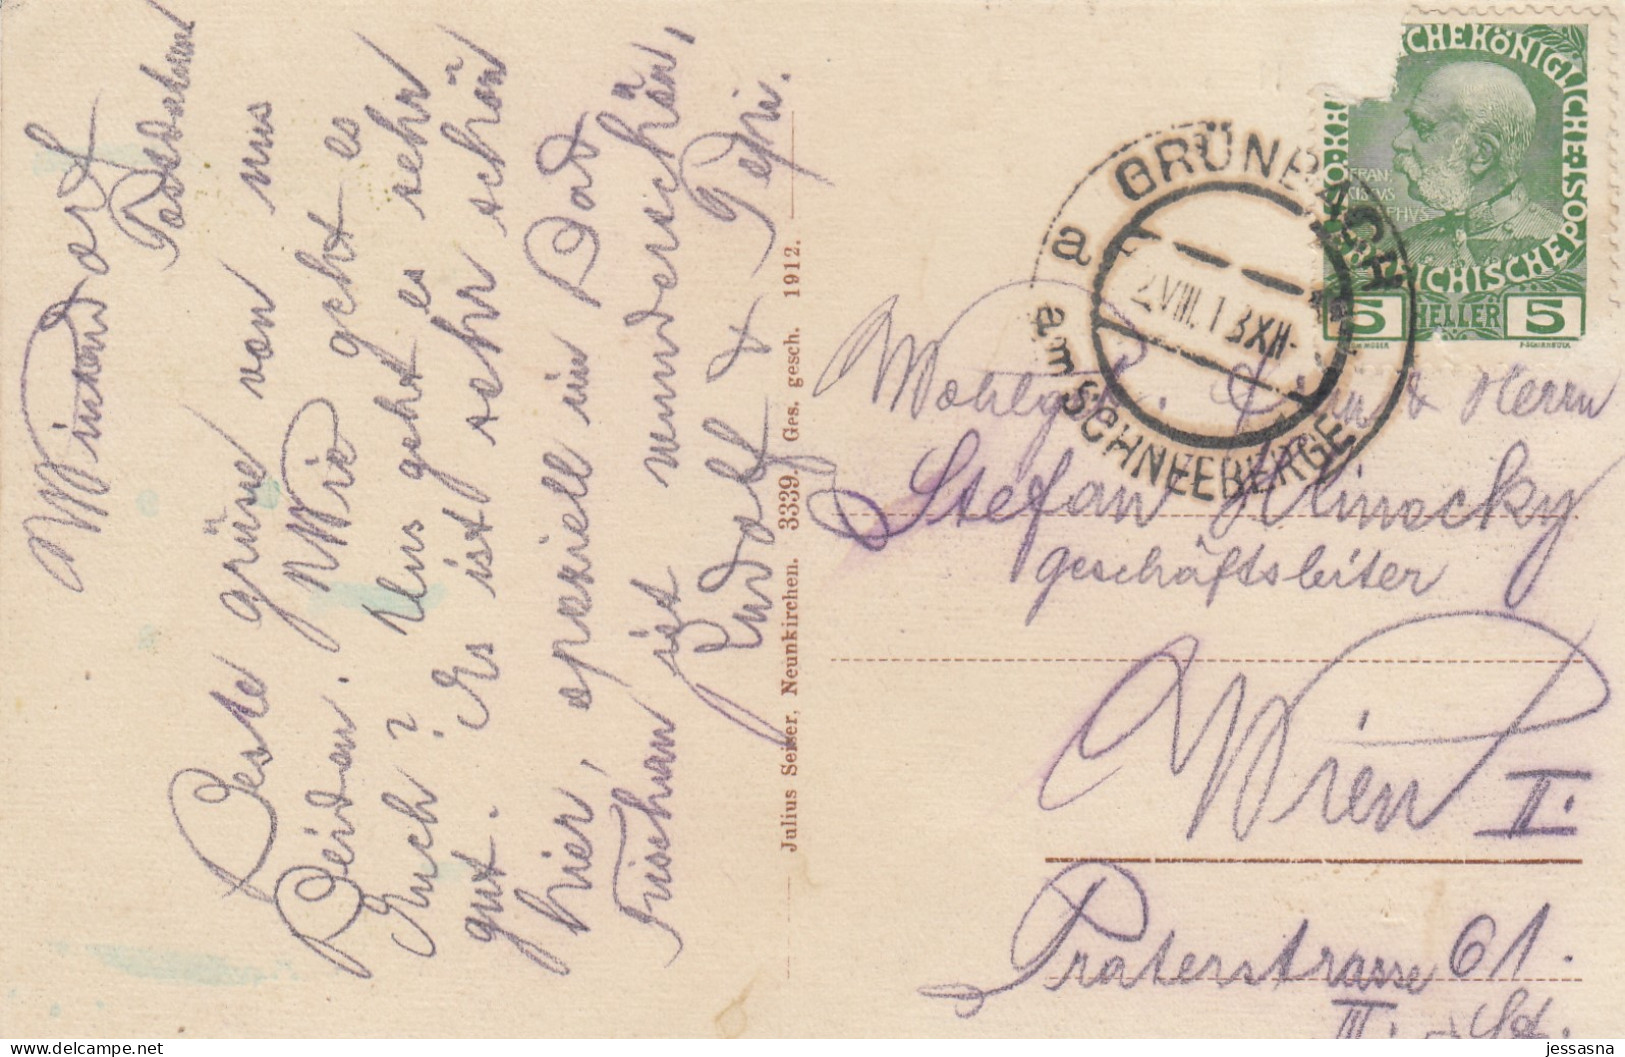 Winzendorf
Beste Grüße von uns
Beiden. Wie geht es
Euch? Uns geht es sehr
gut. Es ist sehr schön
hier, speziell im Bad
Fischau ist wunderschön,
Rudolf & Pepi.
Julius Seiser, Neunkirchen. 3339. Ges. gesch. 1912.
GRÜNBACH
a
am SCHNEEBERGE
2 VIII. 13 XII
CHEKÖNIGLICHE
5 HELLER 5
Wohlgeb. & Herrn
Stefan
Geschäftsleiter
Wien II.
Praterstrasse 61.
II. St.
jessasna